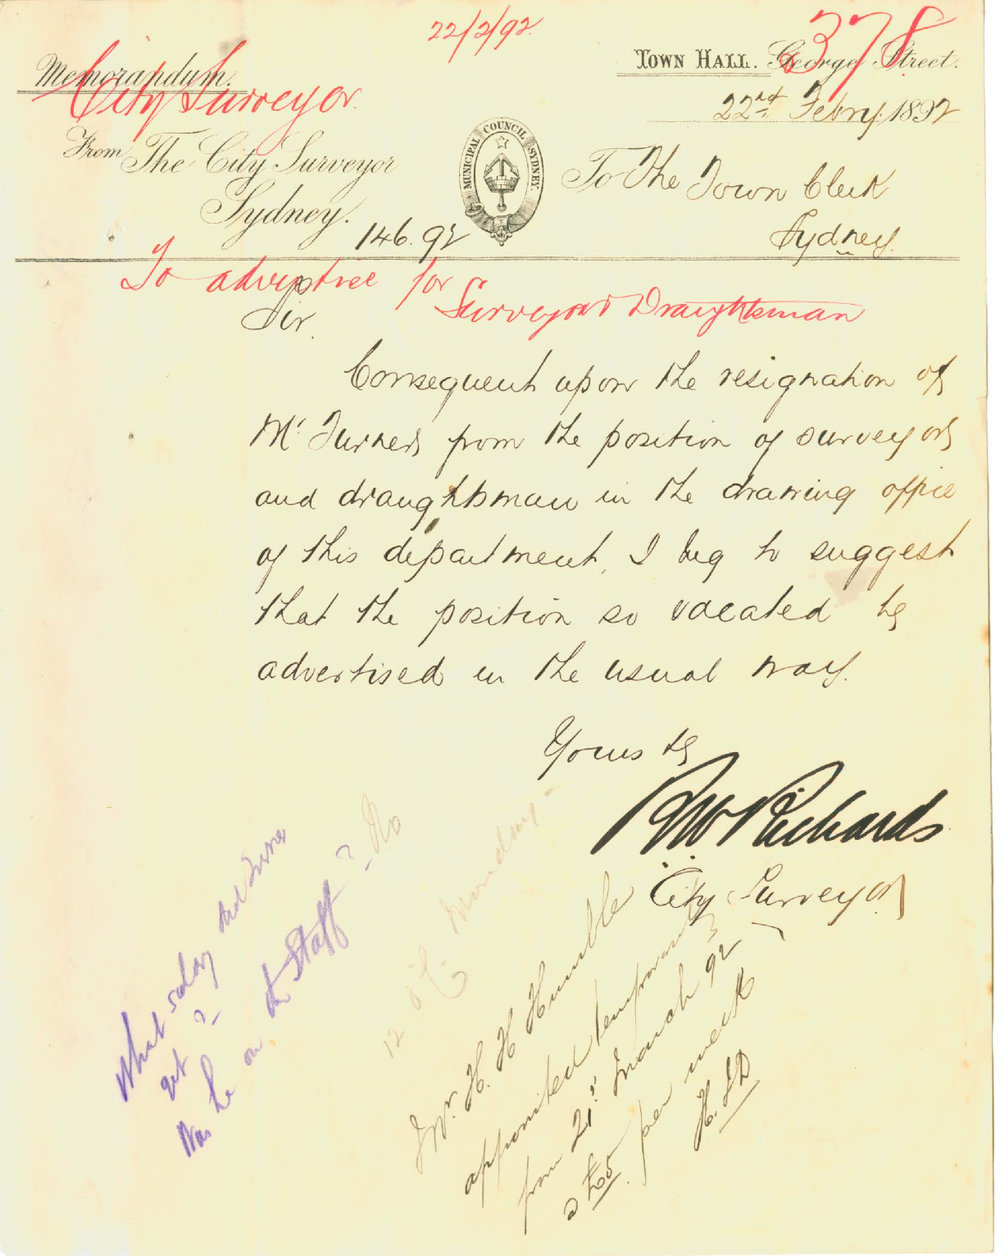 22/2/92
378
Memorandum.
City Surveyor.
TOWN HALL. George Street.
22nd Febry. 1892
From The City Surveyor
Sydney.
MUNICIPAL COUNCIL SYDNEY.
To The Town Clerk
Sydney.
146.92
To advertise for
Surveyor & Draughtsman
Sir.
Consequent upon the resignation of
Mr Turner from the position of surveyor
and draughtsman in the drawing office
of this department, I beg to suggest
that the position so vacated be
advertised in the usual way.
Yours
RW Richards
City Surveyor
What salary did Turner
get?
Was he on the Staff? No
12 Monday
Mr. H. H Humble
appointed temporarily
from 21st March 92
a £5 per week
H.